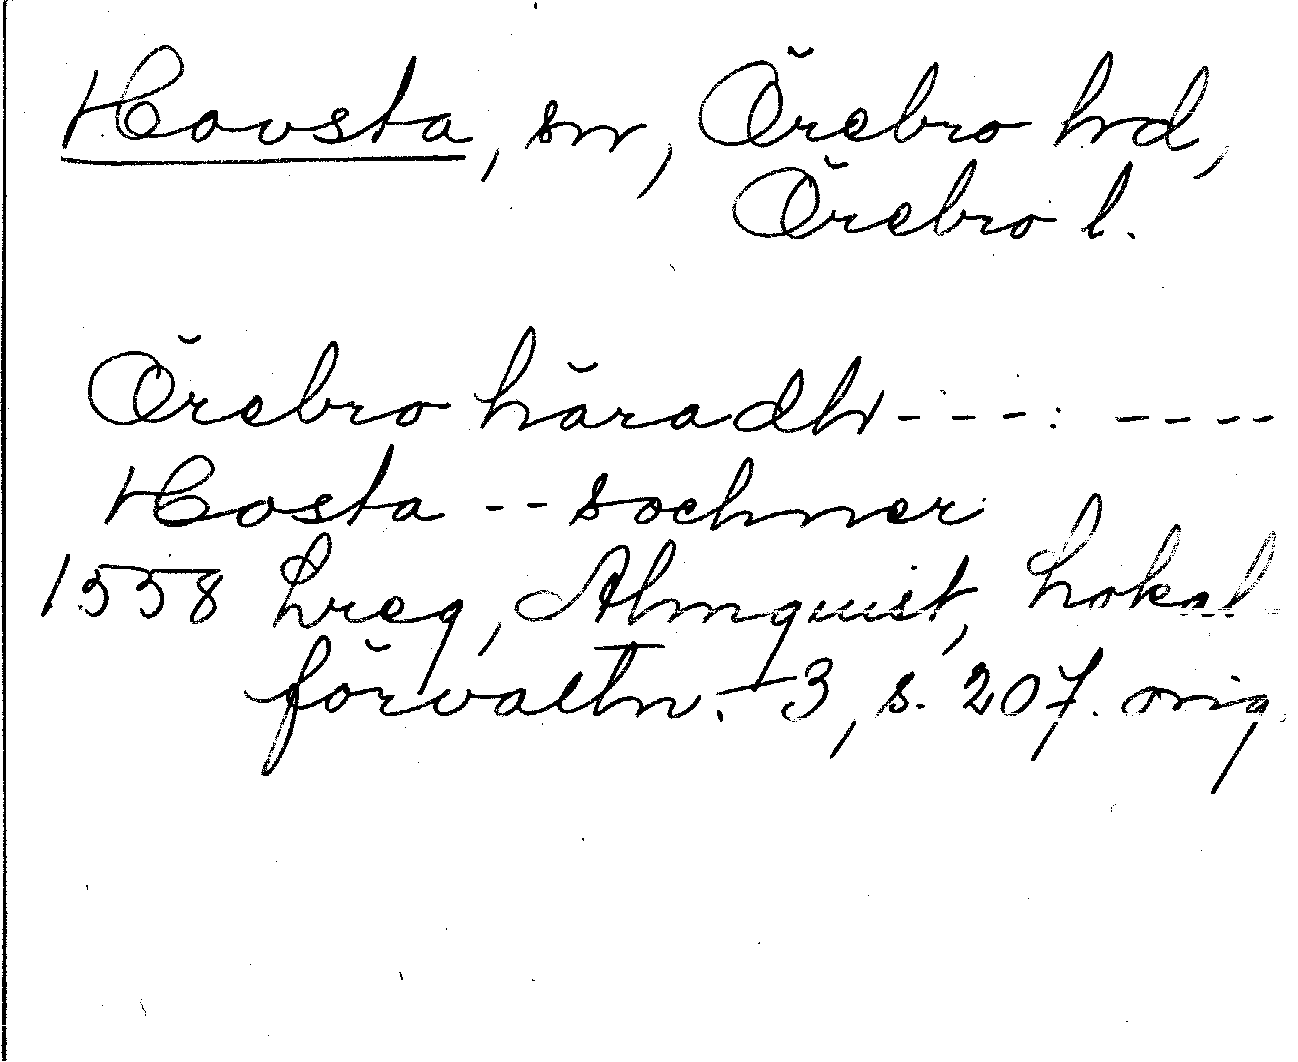 Hovsta, sn, Örebro hrd,
Örebro l.
Örebro häradh - - - : - - - -
Hosta - - sochner
1558 Lreg, Almquist, Lokal-
förvaltn. 3, s. 207. orig.